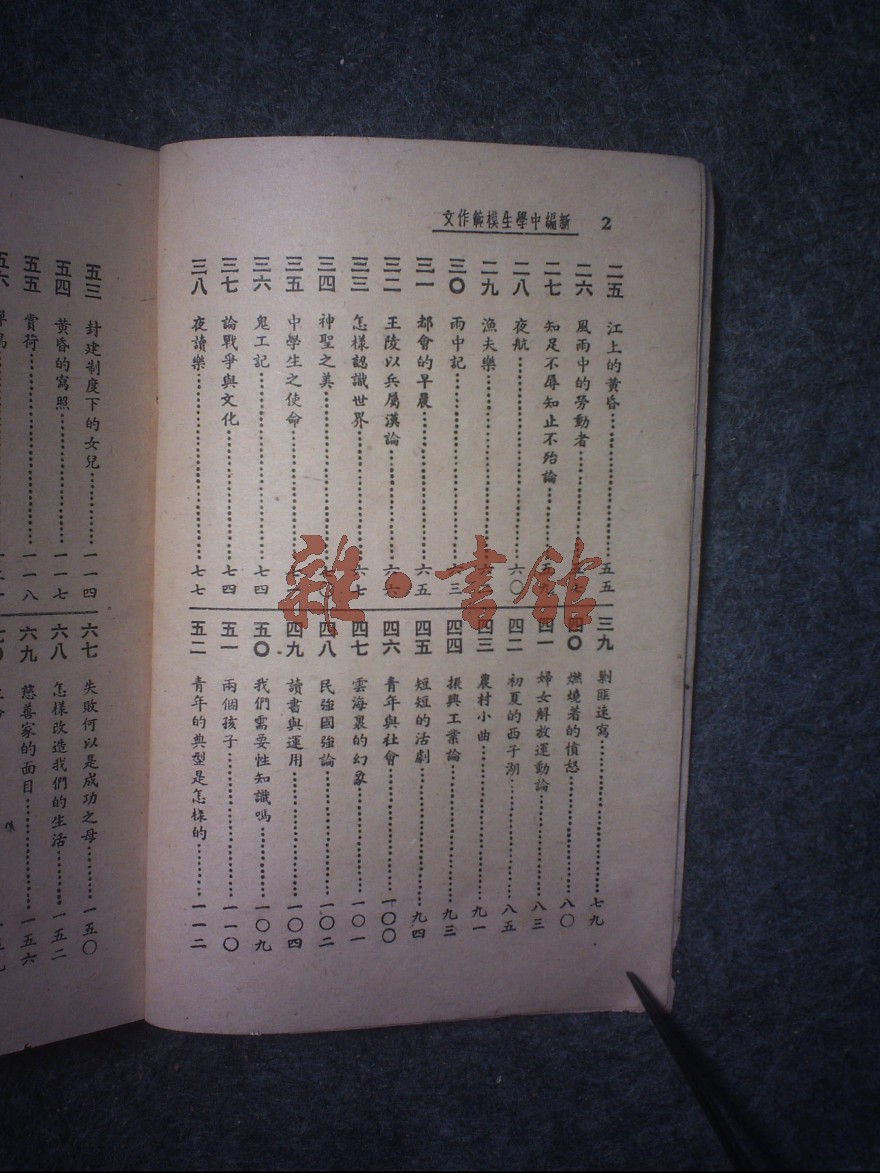 新編中學生模範作文 2
二五 江上的黃昏 五五
二六 風雨中的勞動者
二七 知足不辱知止不殆論
二八 夜航 六〇
二九 漁夫樂
三〇 雨中記 六三
三一 都會的早晨 六五
三二 王陵以兵屬漢論 六六
三三 怎樣認識世界 六七
三四 神聖之美
三五 中學生之使命
三六 鬼工記 七四
三七 論戰爭與文化 七四
三八 夜讀樂 七七
三九 剿匪速寫 七九
四〇 燃燒着的憤怒 八〇
四一 婦女解放運動論 八三
四二 初夏的西子湖 八五
四三 農村小曲 九一
四四 振興工業論 九三
四五 短短的活劇 九四
四六 青年與社會 一〇〇
四七 雲海裏的幻象 一〇一
四八 民強國強論 一〇二
四九 讀書與運用 一〇四
五〇 我們需要性知識嗎 一〇九
五一 兩個孩子 一一〇
五二 青年的典型是怎樣的 一一二
五三 封建制度下的女兒 一一四
五四 黃昏的寫照 一一七
五五 賞荷 一一八
五六
六七 失敗何以是成功之母 一五〇
六八 怎樣改造我們的生活 一五二
六九 慈善家的面目 一五六
七〇
雜·書館